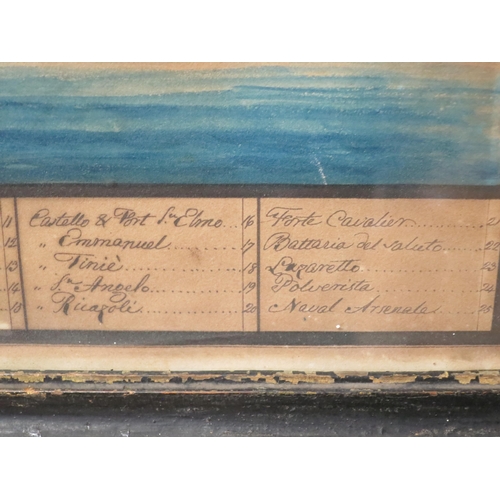 11 Castello & Port Sn Elmo 16 Forte Cavalier
12 " Emmanuel 17 Battaria del Saluto
13 " Tiniè 18 Lazaretto 23
14 " Sn Angelo 19 Polverista 24
15 " Ricazoli 20 Naval Arsenale 25